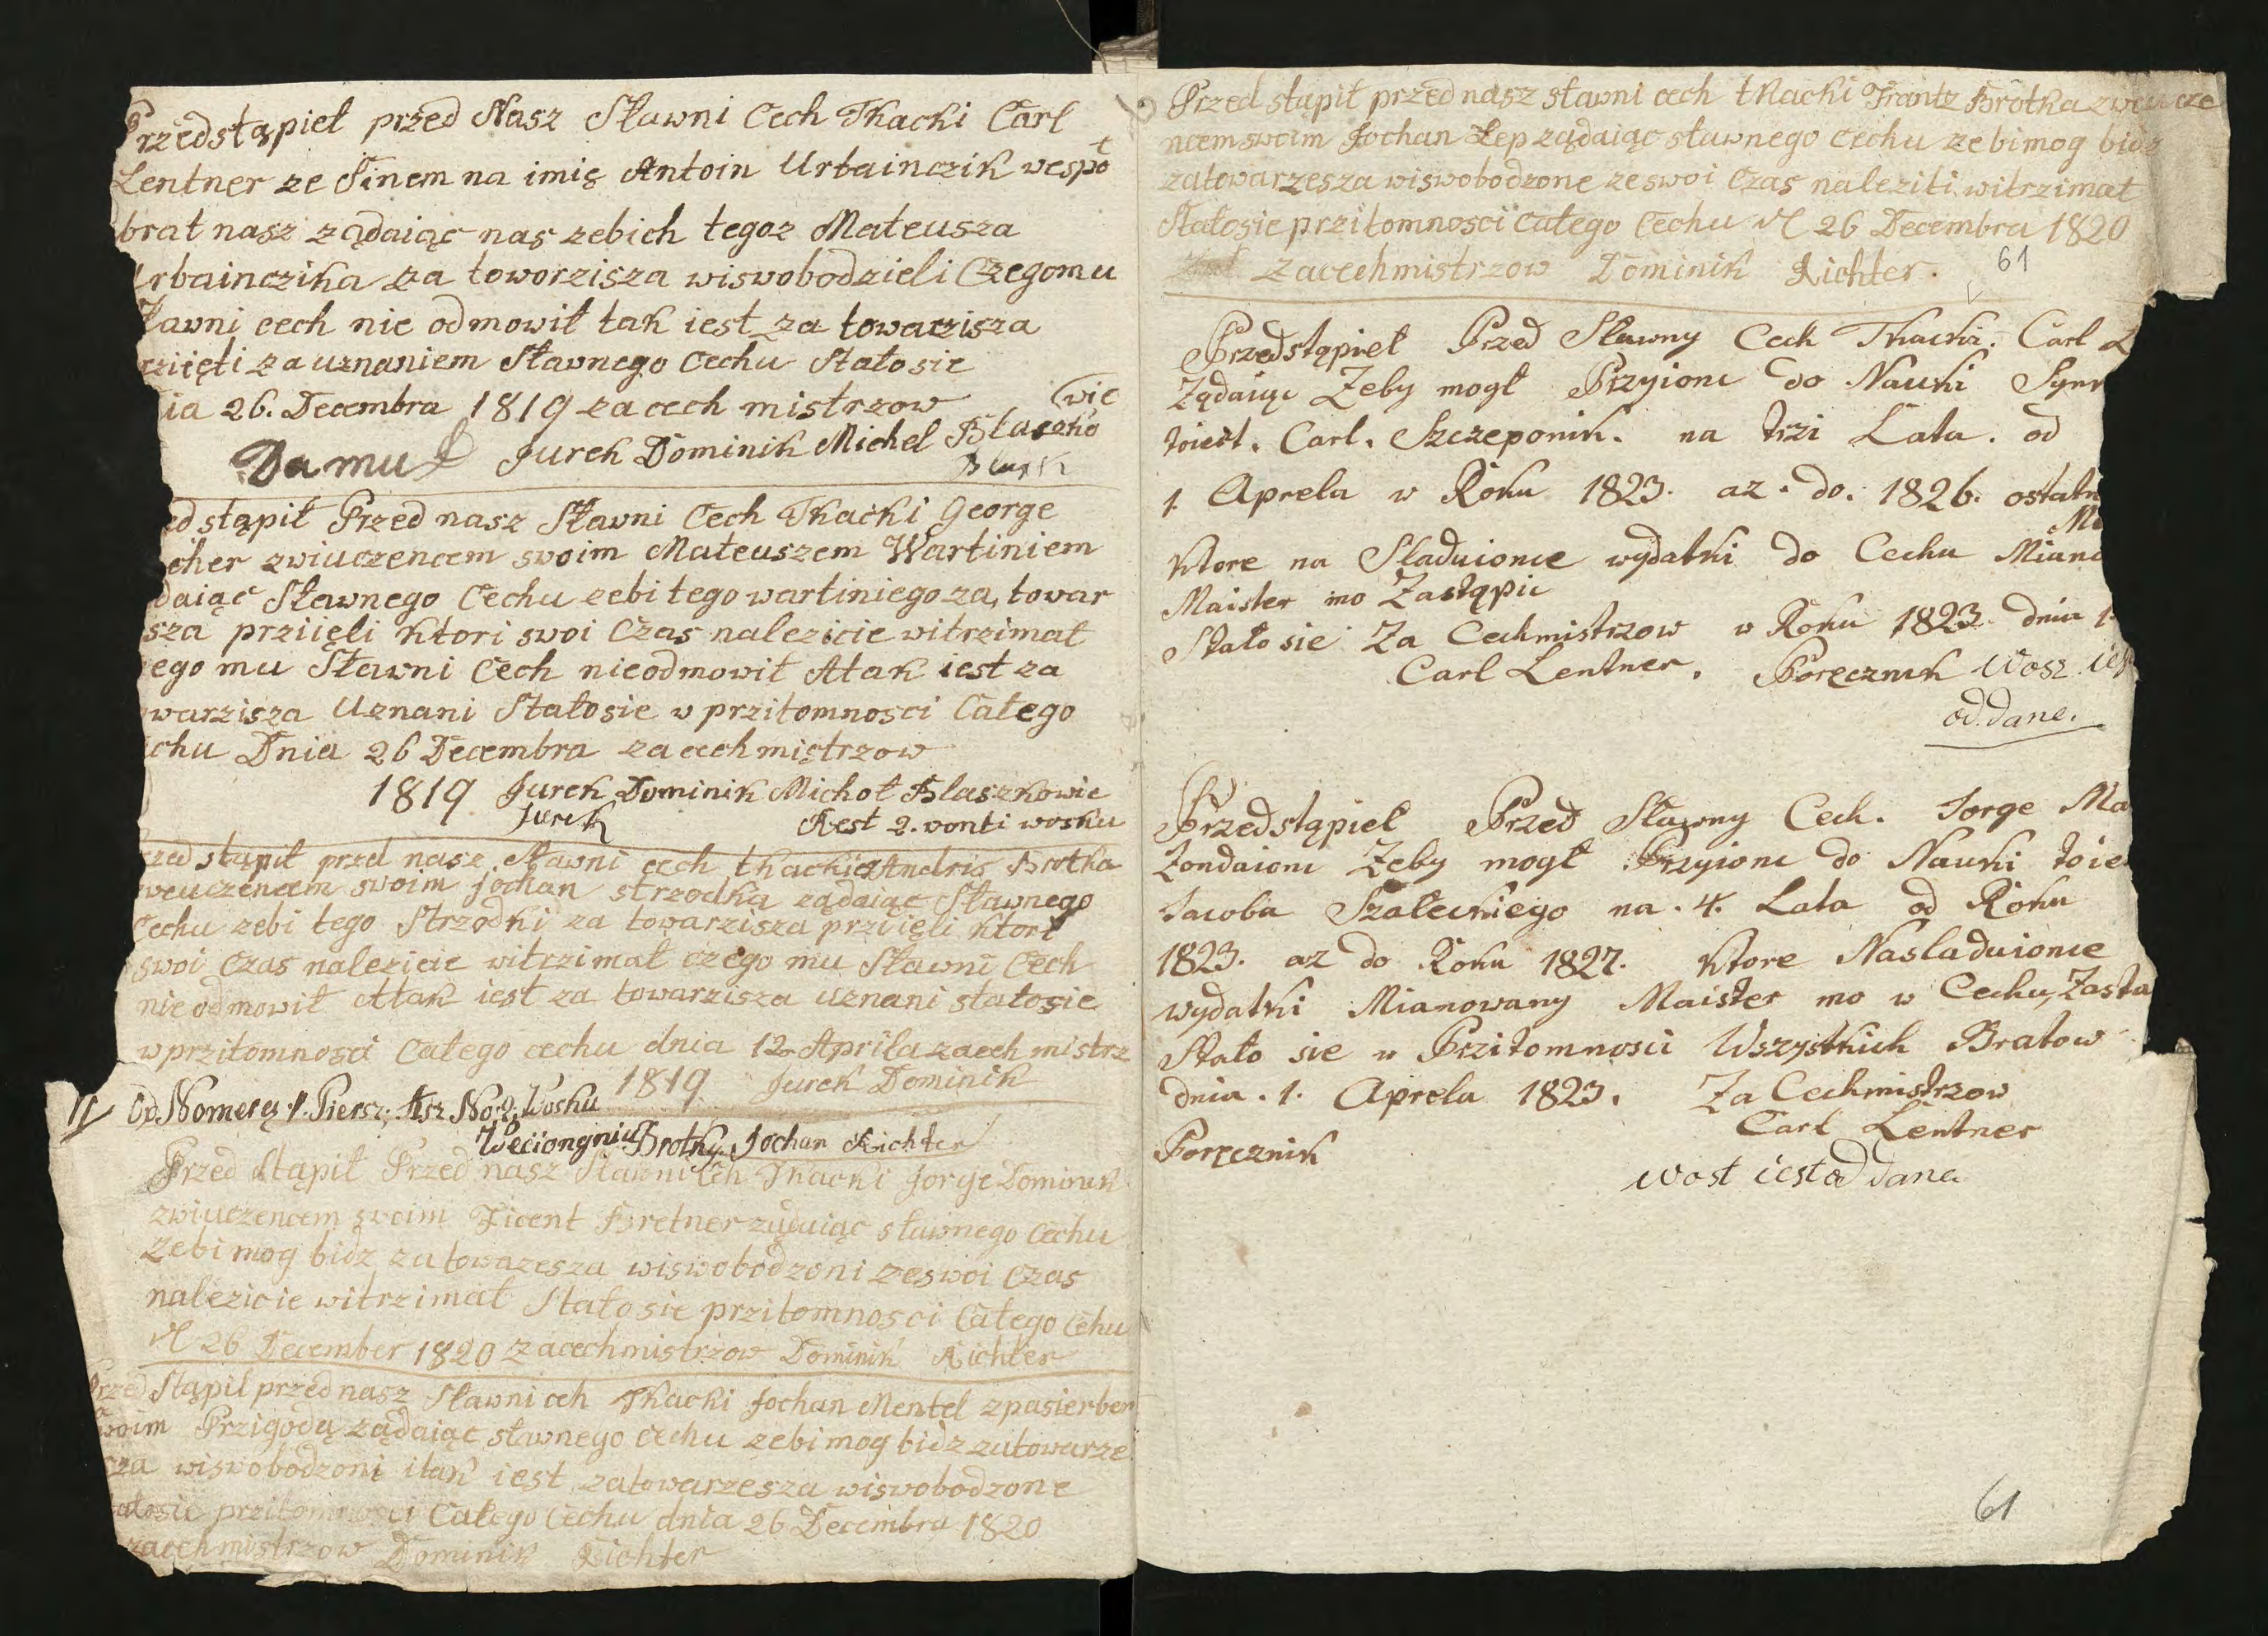 Przedstąpieł przed Nasz Sławni Cech Tkacki Carl
Lentner ze Sinem na imię Antoin Urbainczik wespoł
brat nasz ządaiąc nas zebich tegoz Mateusza
Urbainczika za toworzisza wiswobodzieli Czegomu
awni cech nie odmowił tak iest za towarzisza
rziięti za uznaniem Sławnego Cechu Stałosie
ia 26. Decembra 1819 za cech mistrzow
Jurek Dominik Michel Błaszko
wic
Da mu
ed stąpił Przed nasz Sławni Cech Tkacki George
cher zwiuczencem swoim Mateuszem Wartiniem
daiąc Sławnego Cechu zebi tego wartiniego za towar
sza prziięli ktori swoi Czas nalezicie witrzimał
ego mu Sławni Cech nieodmowił Atak iest za
warzisza Uznani Stałosie w przitomnosci Całego
chu Dnia 26 Decembra za cech mistrzow
1819 Jurek Dominik Michoł Blaszkowic
Jurek Rest 2. vonti wosku
zed stąpił przed nasz Sławni cech tkacki Andris Brotka
weuczencem swoim Jochan strzodka ządaiąc Sławnego
Cechu zebi tego Strzodki za towarzisza prziięli ktori
swoi Czas nalezicie witrzimał czego mu Sławni Cech
nie odmowił Atak iest za towarzisza uznani stałosie
w przitomnosci Całego cechu dnia 12 Aprila zacech mistrz
1819 Jurek Dominik
Od Nomerą 1. Piersz. Asz No 2. Wosku
Weciongniu Brotky Jochan Richter
Przed stąpił Przed nasz Sławni Ceh Tkacki Jorge Dominik
zwiuczencem swoim Ficent Bretner ządaiąc sławnego Cechu
Zebi mog bidz za towazesza wiswobodzoni ze swoi Czas
nalezicie witrzimał Stałosie przitomnosci Całego Cehu
26 December 1820 za cechmistrzow Dominik Richter
Przed Stąpił przed nasz Sławni ceh Tkacki Jochan Mentel zpasierber
swoim Przigodą ządaiąc słwnego Cechu zebi mog bidz zatowarze
sza wiswobodzoni itak iest zatowarzesza wiswobodzone
ałosie przitomnosci Całego Cechu dnia 26 Decembra 1820
zacechmistrzow Dominik Richter
Przed stąpił przed nasz sławni cech tkacki Frantz Brotka zweucze
ncem swoim Jochan Łep ządaiąc sławnego Cechu zebi mog bidz
zatowarzesza wiswobodzone ze swoi Czas naleziti witrzimat
Stałosie przitomnosci Całego Cechu 26 Decembra 1820
zacechmistrzow Dominik Richter.
61
Przedstąpieł Przed Sławny Cech Tkacki. Carl L
Ządaiąc Zeby mogł Przyionc do Nauki Syn
toiest. Carl. Szczeponik. na trzi Lata. od
1. Aprela w Roku 1823. az. do. 1826. ostatn
Ktore na Sladuionce wydatki do Cechu Miano
Maister mo Zastąpic
Stało sie Za Cechmistrzow w Roku 1823. dnia 1.
Carl Lentner. Poręcznik Wosz ies
od dane.
Przedstąpieł Przed Sławny Cech. Jorge Ma
Zondaionc Zeby mogł Przyionc do Nauki toie
Jacoba Szałeckiego na. 4. Lata od Roku
1823. az do Roku 1827. Ktore Nasladuionce
wydatki Mianowany Maister mo w Cechu, Zasta
Stało sie w Przitomnosci Wszystkich Bratow
dnia. 1. Aprela 1823. Za Cechmistrzow
Carl Lentner
Poręcznik
Wost iest od dane
61